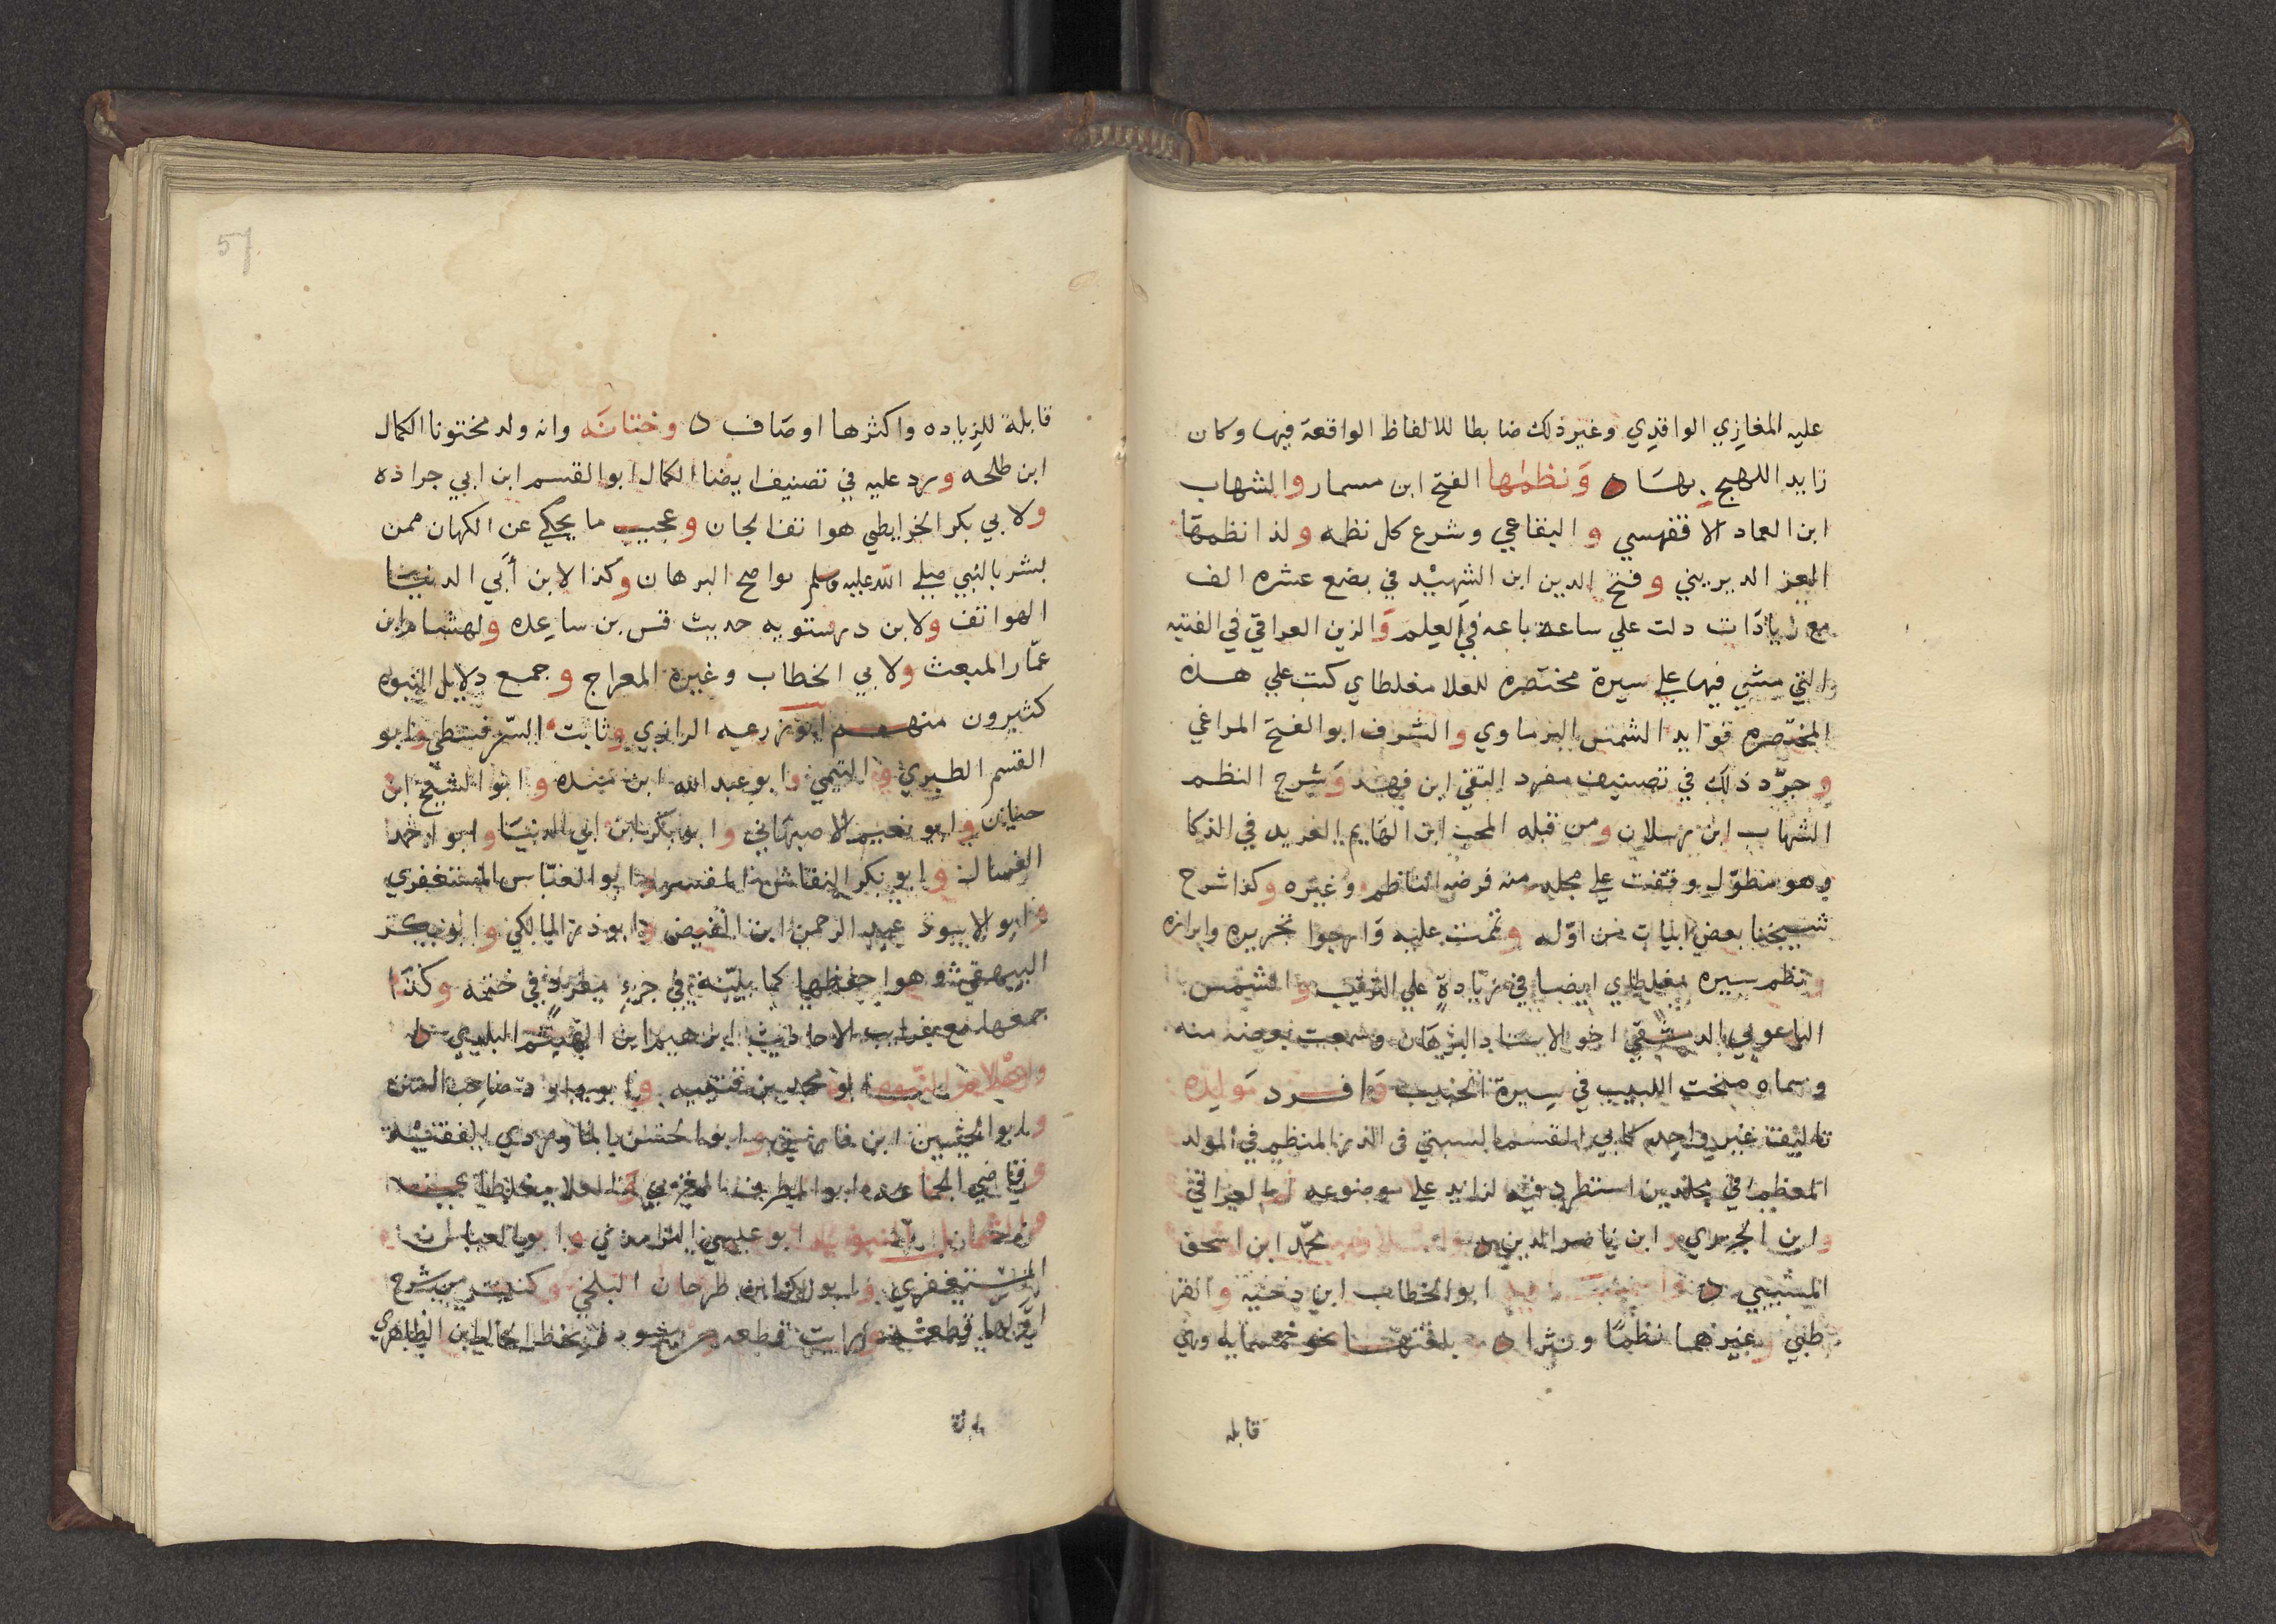 عليه المغازي الواقدي وغير ذلك ضابطا للالفاظ الواقعة فيها وكان
زايد اللهج بها ه ونظمها الفتح ابن مسمار والشهاب
ابن العماد الاقفهسي و البقاعي وشرع كل نظمه ولذا نظمها
العز الديريني وفتح الدين ابن الشهيد في بضع عشره الف
مع زيادات دلت علي ساعة باعه في العلم والزين العراقي في الفتيه
التي مشي فيها علي سيرة مختصره للعلا مغلطاي كتب علي هذه
المختصره فوايد الشمس البرماوي والشرف ابو الفتح المراغي
وجرد ذلك في تصنيف مفرد التقي ابن فهد وشرح النظم
الشهاب ابن رسلان ومن قبله المحب ابن الهايم الفريد في الذكا
وهو مطول وقفت علي مجلد منه قرضه الناظم وغيره وكذا شرح
شيخنا بعض ابيات من اوله وتممت عليه وارجوا تحريره وابرازه
ونظم سيره مغلطاي ايضا في زيادة علي الترتيب والشمس
الباعوني الدمشقي اخو الاستاد البرهان وسمعت بعضه منه
وسماه منحت اللبيب في سيرة الحبيب وافرد مولده
تاليف غير واحد كابي القسم السبتي في الدر المنظم في المولد
المعظم في مجلدين استطرد فيه لزايد علي موضوعه ثم العراقي
وابن الجزري وابن ناصر الدين محمد ابن اسحق
المسيبي ه ابو الخطاب ابن دحية والقر
طبي وغيرهما نظما ونثرا ه بلغتها نحو خمسمايه وهي
قابله
57
قابلة للزياده واكثرها اوصاف ه وختانه وانه ولد مختونا الكمال
ابن طلحه ورد عليه في تصنيف ايضا الكمال ابو القسم ابن ابي جراده
ولابي بكر الخرايطي هواتف الجان وعجيب ما يحكي عن الكهان ممن
بشر بالنبي صلي الله عليه وسلم بواضح البرهان وكذا لابن أبي الدنيا
الهواتف ولابن درستويه حديث قس بن ساعده ولهشام ابن
عمار المبعث ولابي الخطاب وغيره المعراج وجمع دلايل النبوه
كثيرون منهم ابو زرعه الرازي وثابت السرقسطي وابو
القسم الطبري والتيمي وابو عبد الله ابن منده وابو الشيخ ابن
حيان وابو نعيم الاصبهاني وابو بكر ابن ابي الدنيا وابو احمد
العسال وابو بكر النقاش المفسر وابو العباس المستغفري
وابو الاسود عبد الرحمن ابن الفيض وابو ذر المالكي وابو بكر
البيهقي وهو احفظها كما بينته في جزء مفرد في ختمه وكذا
جمعها مع غرايب الاحاديث ابرهيم ابن الهيثم البلدي ه
واعلام النبوه ابو محمد بن قتيبه وابو داود صاحب السنن
وابو الحسين ابن فارس وابو الحسن الماوردي الفقيه
وقاضي الجماعه ابو المطرف المغربي والعلا مغلطاي
ابو عيسي الترمذي وابو العباس
المستغفري وابو بكر ابن طرخان البلخي وكتبت من شرح
اولها قطعة ورايت قطعه بخط الحافظ ابن الظاهري